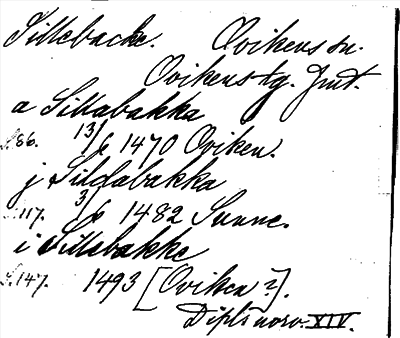 Sillebacke. Ovikens sn.
Ovikens tg. Jmt.
a Sillabakka
S. 86. 13/6 1470 Oviken.
j Sildabakka
S. 117. 3/6 1482 Sunne.
i Sillabakke
S. 147. 1493 [Oviken?].
Dipl. norv. XIV.